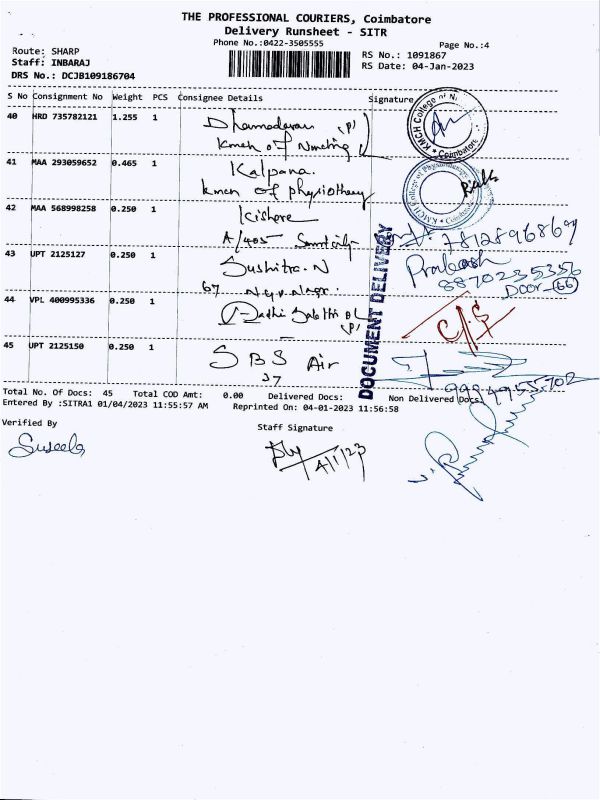 THE PROFESSIONAL COURIERS, Coimbatore
Delivery Runsheet - SITR
Phone No.:0422-3505555
Page No.:4
Route: SHARP
Staff: INBARAJ
DRS No.: DCJB109186704
RS No.: 1091867
RS Date: 04-Jan-2023
S No Consignment No Weight PCS Consignee Details Signature
40 HRD 735782121 1.255 1
KMCH College of N
Coimbatore
41 MAA 293059652 0.465 1 Kalpana.
kmch of physiotherapy
KMCH College of Physiotherapy
42 MAA 568998258 0.250 1 Kishore
A/405
43 UPT 2125127 0.250 1 Sushitra.N
67
Prakash
8870235356
Door-66
DOCUMENT DELIVERY
44 VPL 400995336 0.250 1
45 UPT 2125150 0.250 1 SBS Air
37
Total No. Of Docs: 45 Total COD Amt: 0.00 Delivered Docs: Non Delivered Docs:
Entered By :SITRA1 01/04/2023 11:55:57 AM Reprinted On: 04-01-2023 11:56:58
Verified By
Staff Signature
Suseela
4/1/23